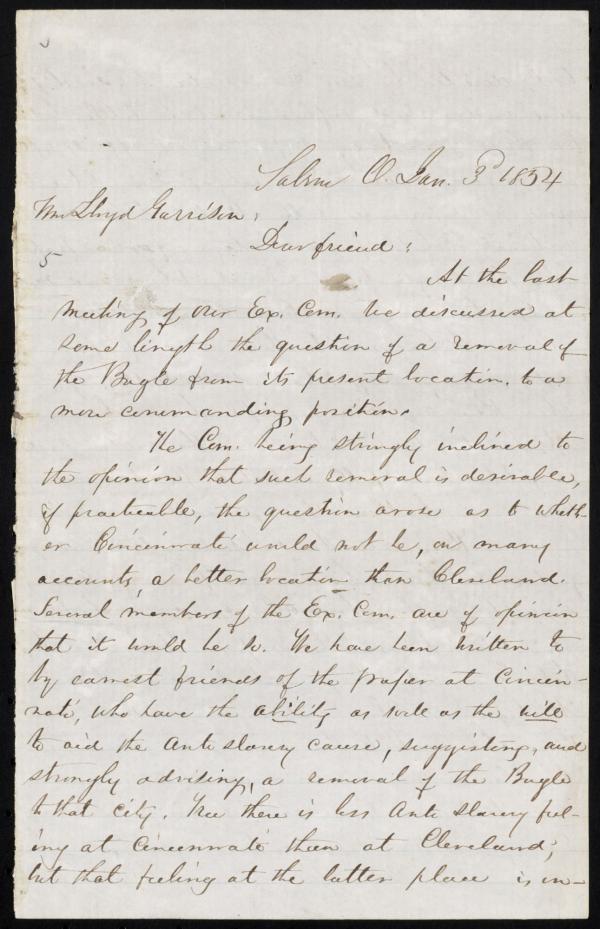 Salem O. Jan. 3d 1854
Wm Lloyd Garrison;
Dear friend;
5
At the last
meeting of our Ex. Com. we discussed at
some length the question of a removal of
the Bugle from its present location, to a
more commanding position.
The Com. being strongly inclined to
the opinion that such removal is desirable,
if practicable, the question arose as to wheth-
er Cincinnati would not be, on many
accounts, a better location than Cleveland.
Several members of the Ex. Com. are of opinion
that it would be so. We have been written to
by earnest friends of the paper at Cincin-
nati, who have the ability as well as the will
to aid the Anti slavery cause, suggesting, and
strongly advising, a removal of the Bugle
to that city. True there is less Anti slavery feel-
ing at Cincinnati than at Cleveland;
but that feeling at the latter place is in-